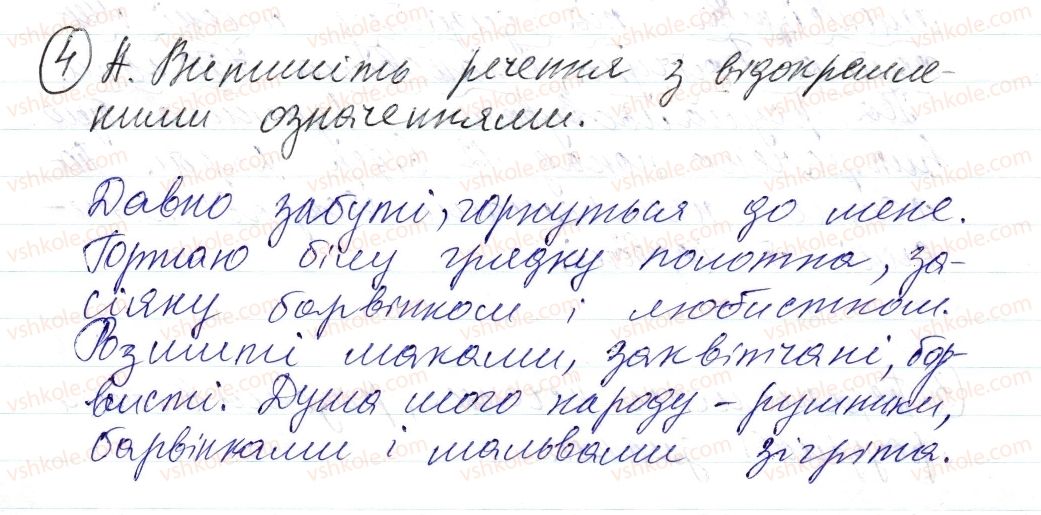 4 А. Випишіть речення з відокремле-
ними означеннями.
Давно забуті, горнуться до мене.
Гортаю білу грядку полотна, за-
сіяну барвінком і любистком.
Розшиті маками, заквітчані, бар-
висті. Душа мого народу – рушники,
барвінками і мальвами зігріта.